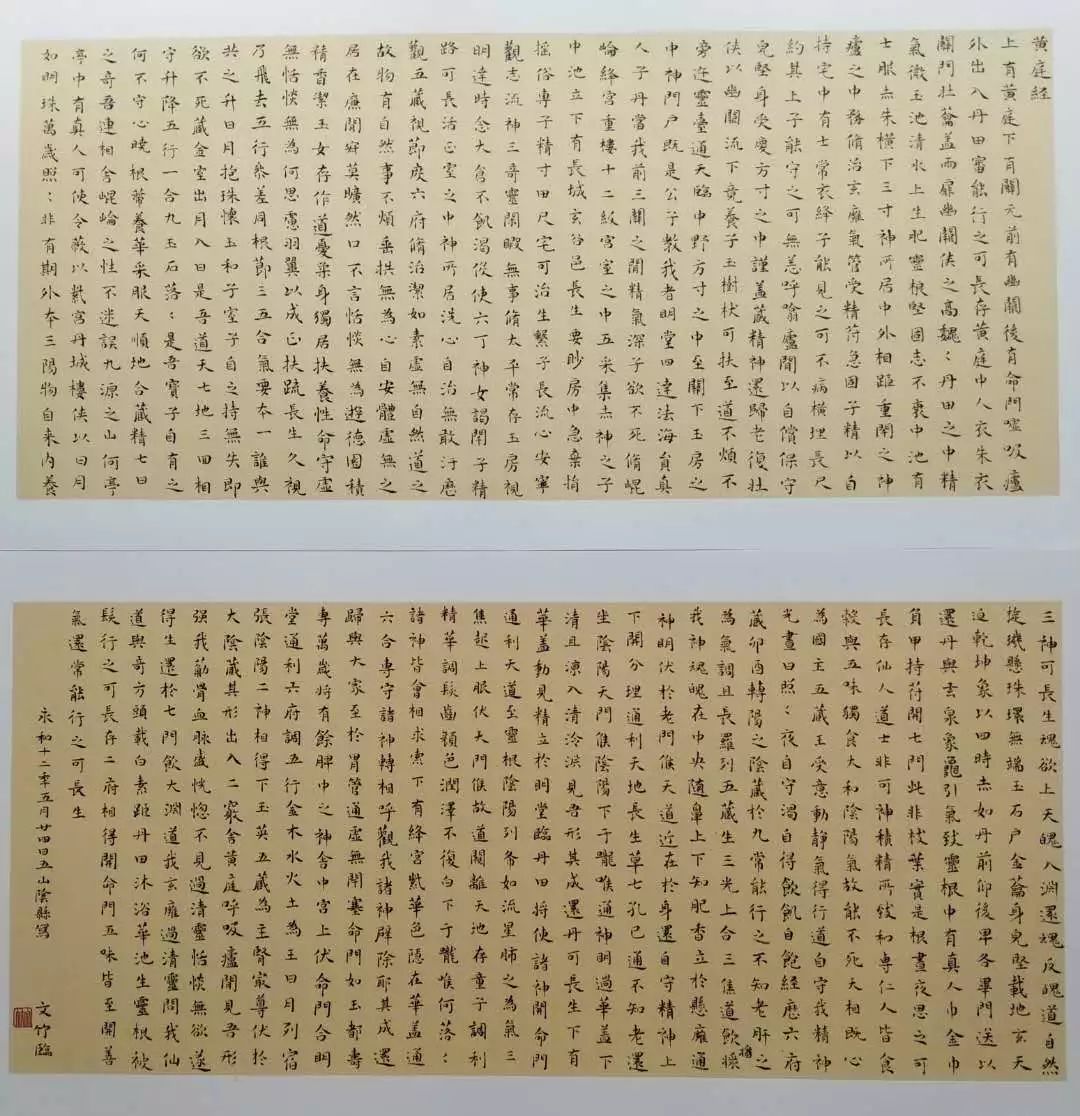 黄庭経
上有黄庭下有關元前有幽關後有命門噓吸廬
外出入丹田審能行之可長存黄庭中人衣朱衣
關門壮蘥盖兩扉幽關侠之高魏〻丹田之中精
氣微玉池清水上生肥靈根堅固志不衰中池有
士服赤朱横下三寸神所居中外相距重閉之神
廬之中務脩治玄癰氣管受精符急固子精以自
持宅中有士常衣絳子能見之可不病横理長尺
約其上子能守之可無恙呼噏廬間以自償保守
皃堅身受慶方寸之中謹盖蔵精神還歸老復壮
侠以幽闕流下竟養子玉樹杖可扶至道不煩不
旁迕靈臺通天臨中野方寸之中至關下玉房之
中神門户既是公子教我者明堂四達法海負真
人子丹當我前三關之間精氣深子欲不死脩崐
崘絳宫重樓十二級宫室之中五采集赤神之子
中池立下有長城玄谷邑長生要眇房中急棄捐
搖俗専子精寸田尺宅可治生繋子長流心安寧
觀志流神三奇靈閑暇無事脩太平常存玉房視
明達時念大倉不飢渴役使六丁神女謁閉子精
路可長活正室之中神所居洗心自治無敢汙歴
觀五蔵視節度六府脩治潔如素虚無自然道之
故物有自然事不煩垂拱無為心自安體虚無之
居在廉間寂莫曠然口不言恬惔無為遊德園積
精香潔玉女存作道憂柔身獨居扶養性命守虚
無恬惔無為何思慮羽翼以成正扶疏長生久視
乃飛去五行參差同根節三五合氣要本一誰與
共之升日月抱珠懷玉和子室子自之持無失即
欲不死蔵金室出月入日是吾道天七地三囬相
守升降五行一合九玉石落〻是吾寶子自有之
何不守心曉根蔕養華采服天順地合蔵精七日
之奇吾連相舍崐崘之性不迷誤九源之山何亭
亭中有真人可使令蔽以紫宫丹城樓侠以日月
如明珠萬歲照〻非有期外本三陽物自来内養
三神可長生魂欲上天魄入淵還魂反魄道自然
旋璣懸珠環無端玉石户金蘥身皃堅載地玄天
迫乾坤象以四時赤如丹前仰後卑各異門送以
還丹與玄泉象龜引氣致靈根中有真人巾金巾
負甲持符開七門此非枝葉實是根晝夜思之可
長存仙人道士非可神積精所致和専仁人皆食
榖與五味獨食大和陰陽氣故能不死天相既心
為國主五蔵王受意動静氣得行道自守我精神
光晝日照〻夜自守渴自得飲飢自飽経歴六府
蔵卯酉轉陽之陰蔵於九常能行之不知老肝之
為氣調且長羅列五蔵生三光上合三焦道飲
我神魂魄在中央隨鼻上下知肥香立於懸癰通
神明伏於老門候天道近在於身還自守精神上
下開分理通利天地長生草七孔已通不知老還
坐陰陽天門候陰陽下于嚨喉通神明過華盖下
清且涼入清泠淵見吾形其成還丹可長生下有
華盖動見精立於明堂臨丹田将使諸神開命門
通利天道至靈根陰陽列布如流星肺之為氣三
焦起上眼伏天門候故道闚離天地存童子調利
精華調髮齒顔色潤澤不復白下于嚨喉何落〻
諸神皆會相求索下有絳宫紫華色隱在華盖通
六合専守諸神轉相呼觀我諸神辟除耶其成還
歸與大家至於胃管通虚無閉塞命門如玉都壽
専萬歲将有餘脾中之神舎中宫上伏命門合明
堂通利六府調五行金木水火土為王日月列宿
張陰陽二神相得下玉英五蔵為主腎最尊伏於
大陰蔵其形出入二竅舎黄庭呼吸廬間見吾形
强我筋骨血脉盛恍惚不見過清靈恬惔無欲遂
得生還於七門飲大淵道我玄癰過清靈問我仙
道與奇方頭載白素距丹田沐浴華池生靈根被
髮行之可長存二府相得開命門五味皆至開善
氣還常能行之可長生
永和十二年五月廿四日五山陰縣寫
文竹臨